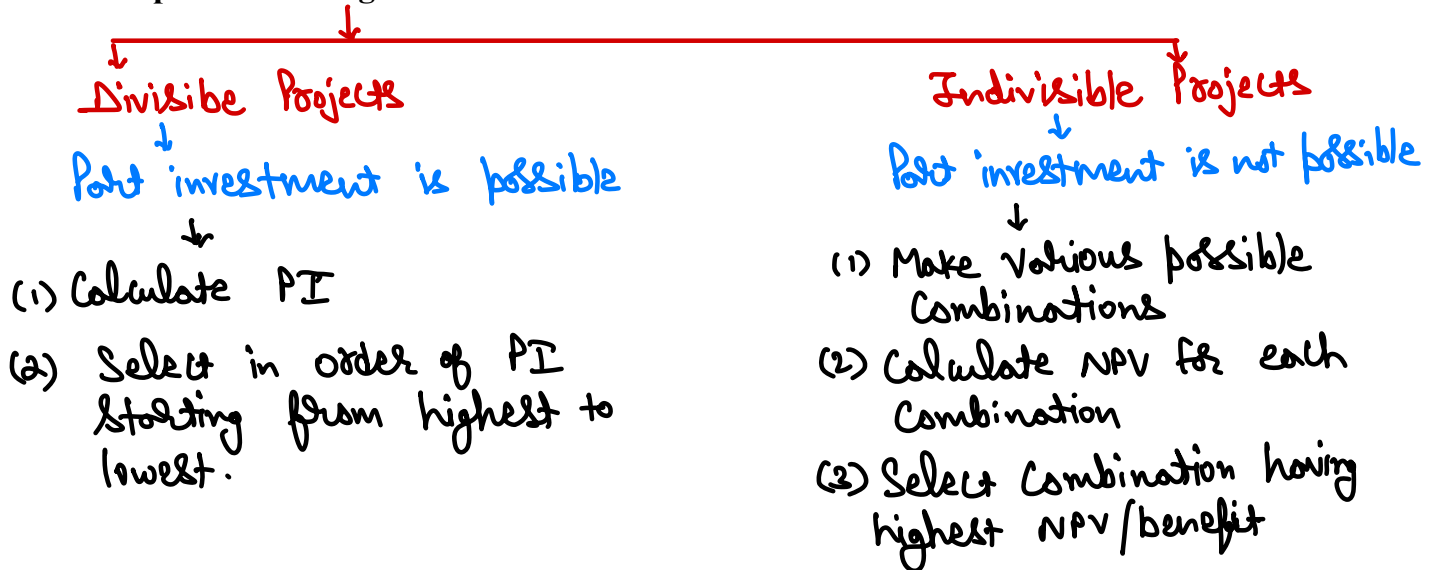 Divisibe Projects
Part investment is possible
(1) Calculate PI
(2) Select in order of PI
starting from highest to
lowest.
Indivisible Projects
Part investment is not possible
(1) Make various possible
Combinations
(2) Calculate NPV for each
Combination
(3) Select Combination having
highest NPV/benefit